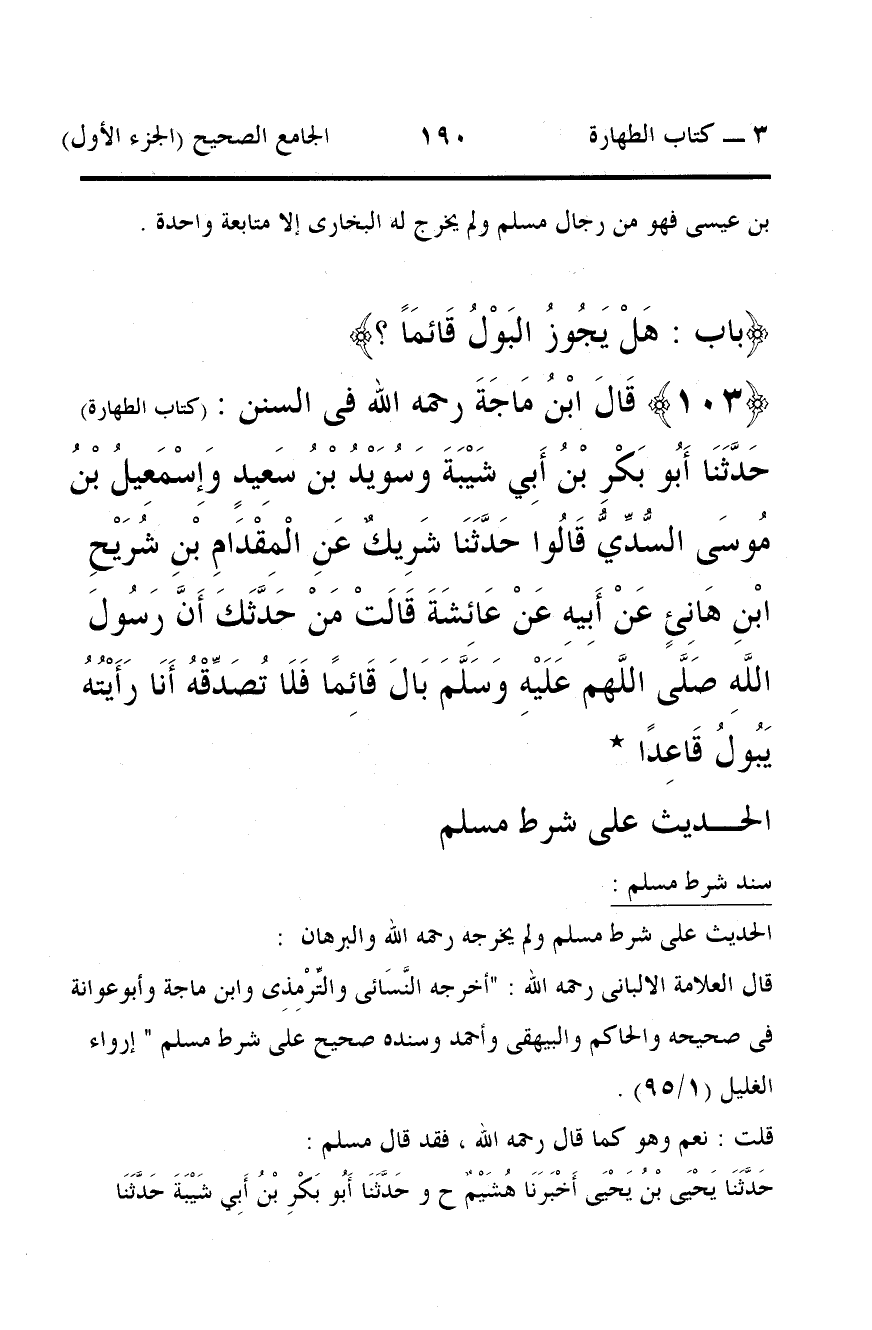 ٣ ــ كتاب الطهارة ١٩٠ الجامع الصحيح (الجزء الأول)
بن عيسى فهو من رجال مسلم ولم يخرج له البخارى إلا متابعة واحدة .
﴿باب : هَلْ يَجُوزُ البَوْلُ قَائمَاً ؟﴾
﴿١٠٣﴾ قَالَ ابْنُ مَاجَةَ رحمه الله فى السنن : (كتاب الطهارة)
حَدَّثَنَا أَبُو بَكْرِ بْنُ أَبِي شَيْبَةَ وَسُوَيْدُ بْنُ سَعِيدٍ وَإِسْمَعِيلُ بْنُ
مُوسَى السُّدِّيُّ قَالُوا حَدَّثَنَا شَرِيكٌ عَنِ الْمِقْدَامِ بْنِ شُرَيْحِ
ابْنِ هَانِئٍ عَنْ أَبِيهِ عَنْ عَائِشَةَ قَالَتْ مَنْ حَدَّثَكَ أَنَّ رَسُولَ
اللَّهِ صَلَّى اللَّهم عَلَيْهِ وَسَلَّمَ بَالَ قَائِمًا فَلَا تُصَدِّقْهُ أَنَا رَأَيْتُهُ
يَبُولُ قَاعِدًا *
الحـــديث على شرط مسلم
سند شرط مسلم :
الحديث على شرط مسلم ولم يخرجه رحمه الله والبرهان :
قال العلامة الالبانى رحمه الله : "أخرجه النَّسَائى والتِّرْمِذى وابن ماجة وأبوعوانة
فى صحيحه والحاكم والبيهقى وأحمد وسنده صحيح على شرط مسلم " إرواء
الغليل (٩٥/١) .
قلت : نعم وهو كما قال رحمه الله ، فقد قال مسلم :
حَدَّثَنَا يَحْيَى بْنُ يَحْيَى أَخْبَرَنَا هُشَيْمٌ ح و حَدَّثَنَا أَبُو بَكْرِ بْنُ أَبِي شَيْبَةَ حَدَّثَنَا